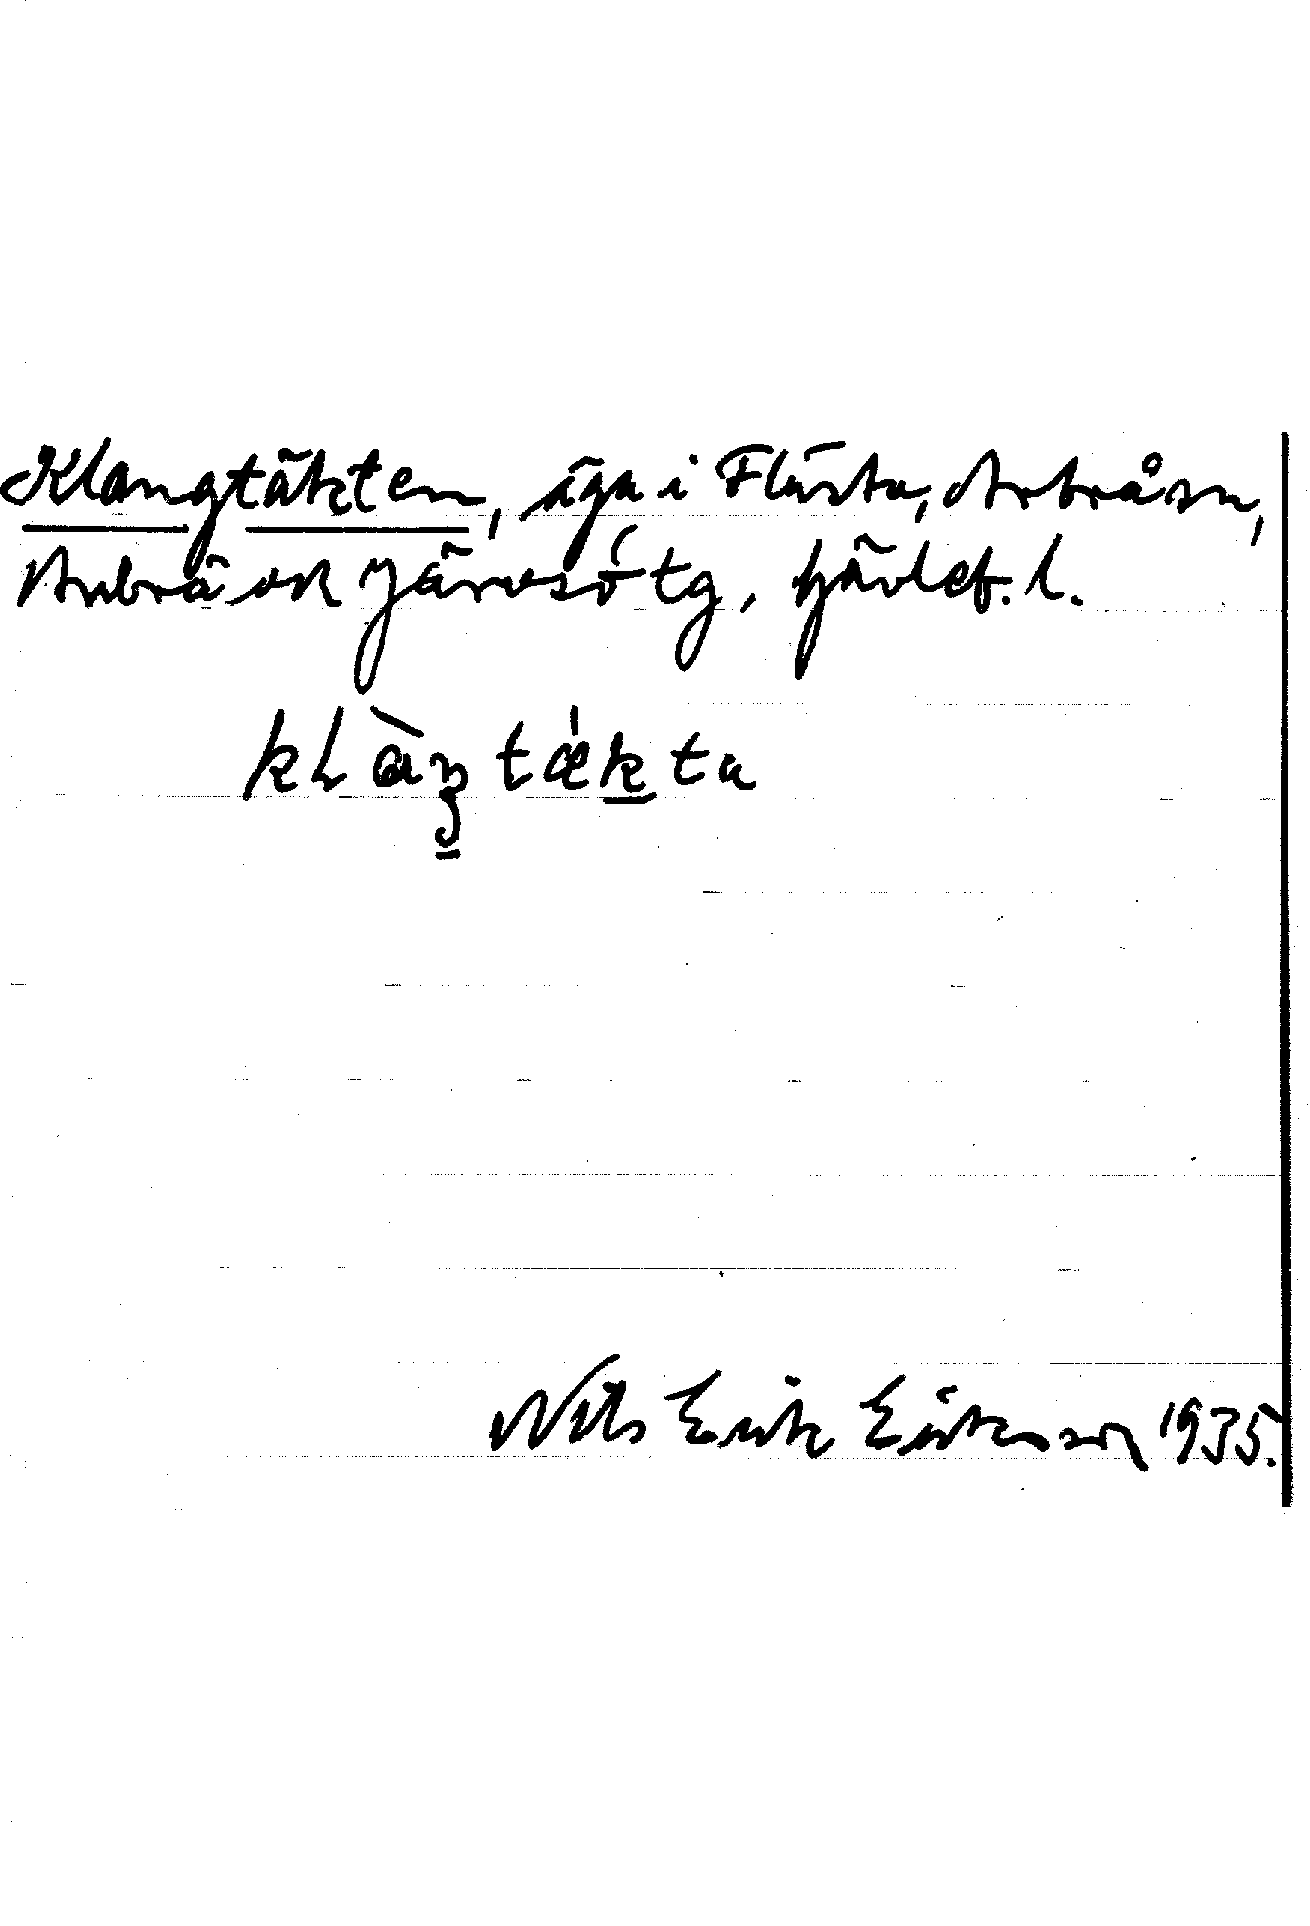 Klangtäkten, äga i Flästa, Arbrå sn,
Arbrå och Järvsö tg, Gävleb. l.
kLàŋtǽkta
Nils Erik Eriksson 1935.